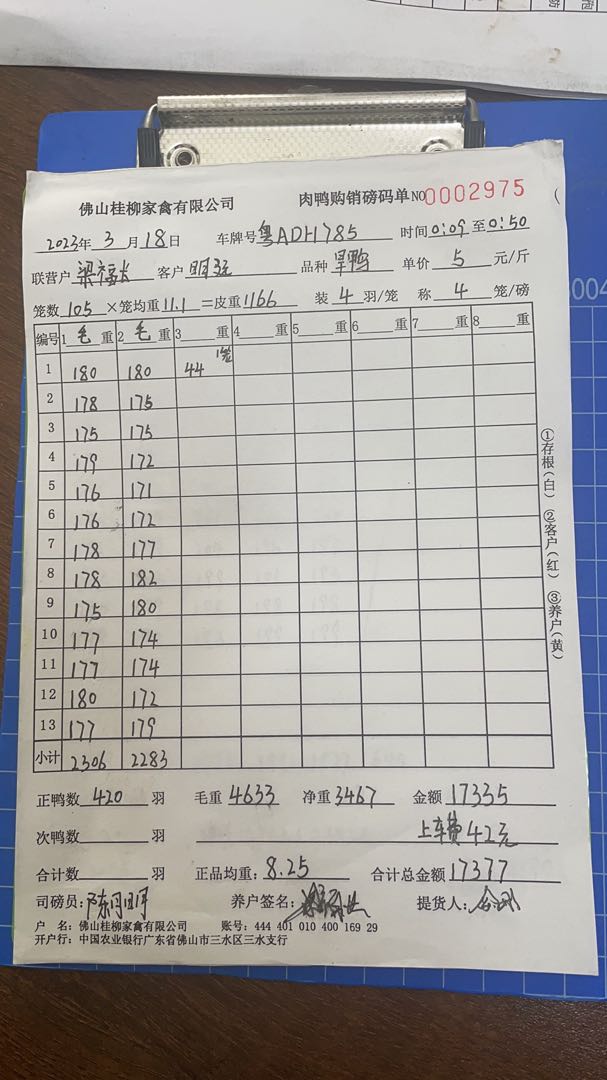 佛山桂柳家禽有限公司 肉鸭购销磅码单 NO 0002975
2023年 3 月 18 日 车牌号 粤ADH785 时间 0:09 至 0:50
联营户 梁福长 客户 明强 品种 旱鸭 单价 5 元/斤
笼数 105 ×笼均重 11.1 =皮重 1166 装 4 羽/笼 称 4 笼/磅
编号 1 毛 重 2 毛 重 3 重 4 重 5 重 6 重 7 重 8 重
1 180 180 44 1笼
2 178 175
3 175 175
4 179 172
5 176 171
6 176 172
7 178 177
8 178 182
9 175 180
10 177 174
11 177 174
12 180 172
13 177 179
小计 2306 2283
正鸭数 420 羽 毛重 4633 净重 3467 金额 17335
次鸭数 羽 上车费42元
合计数 羽 正品均重: 8.25 合计总金额 17377
司磅员: 养户签名: 提货人:
户 名: 佛山桂柳家禽有限公司 账号: 444 401 010 400 169 29
开户行: 中国农业银行广东省佛山市三水区三水支行
①存根(白) ②客户(红) ③养户(黄)